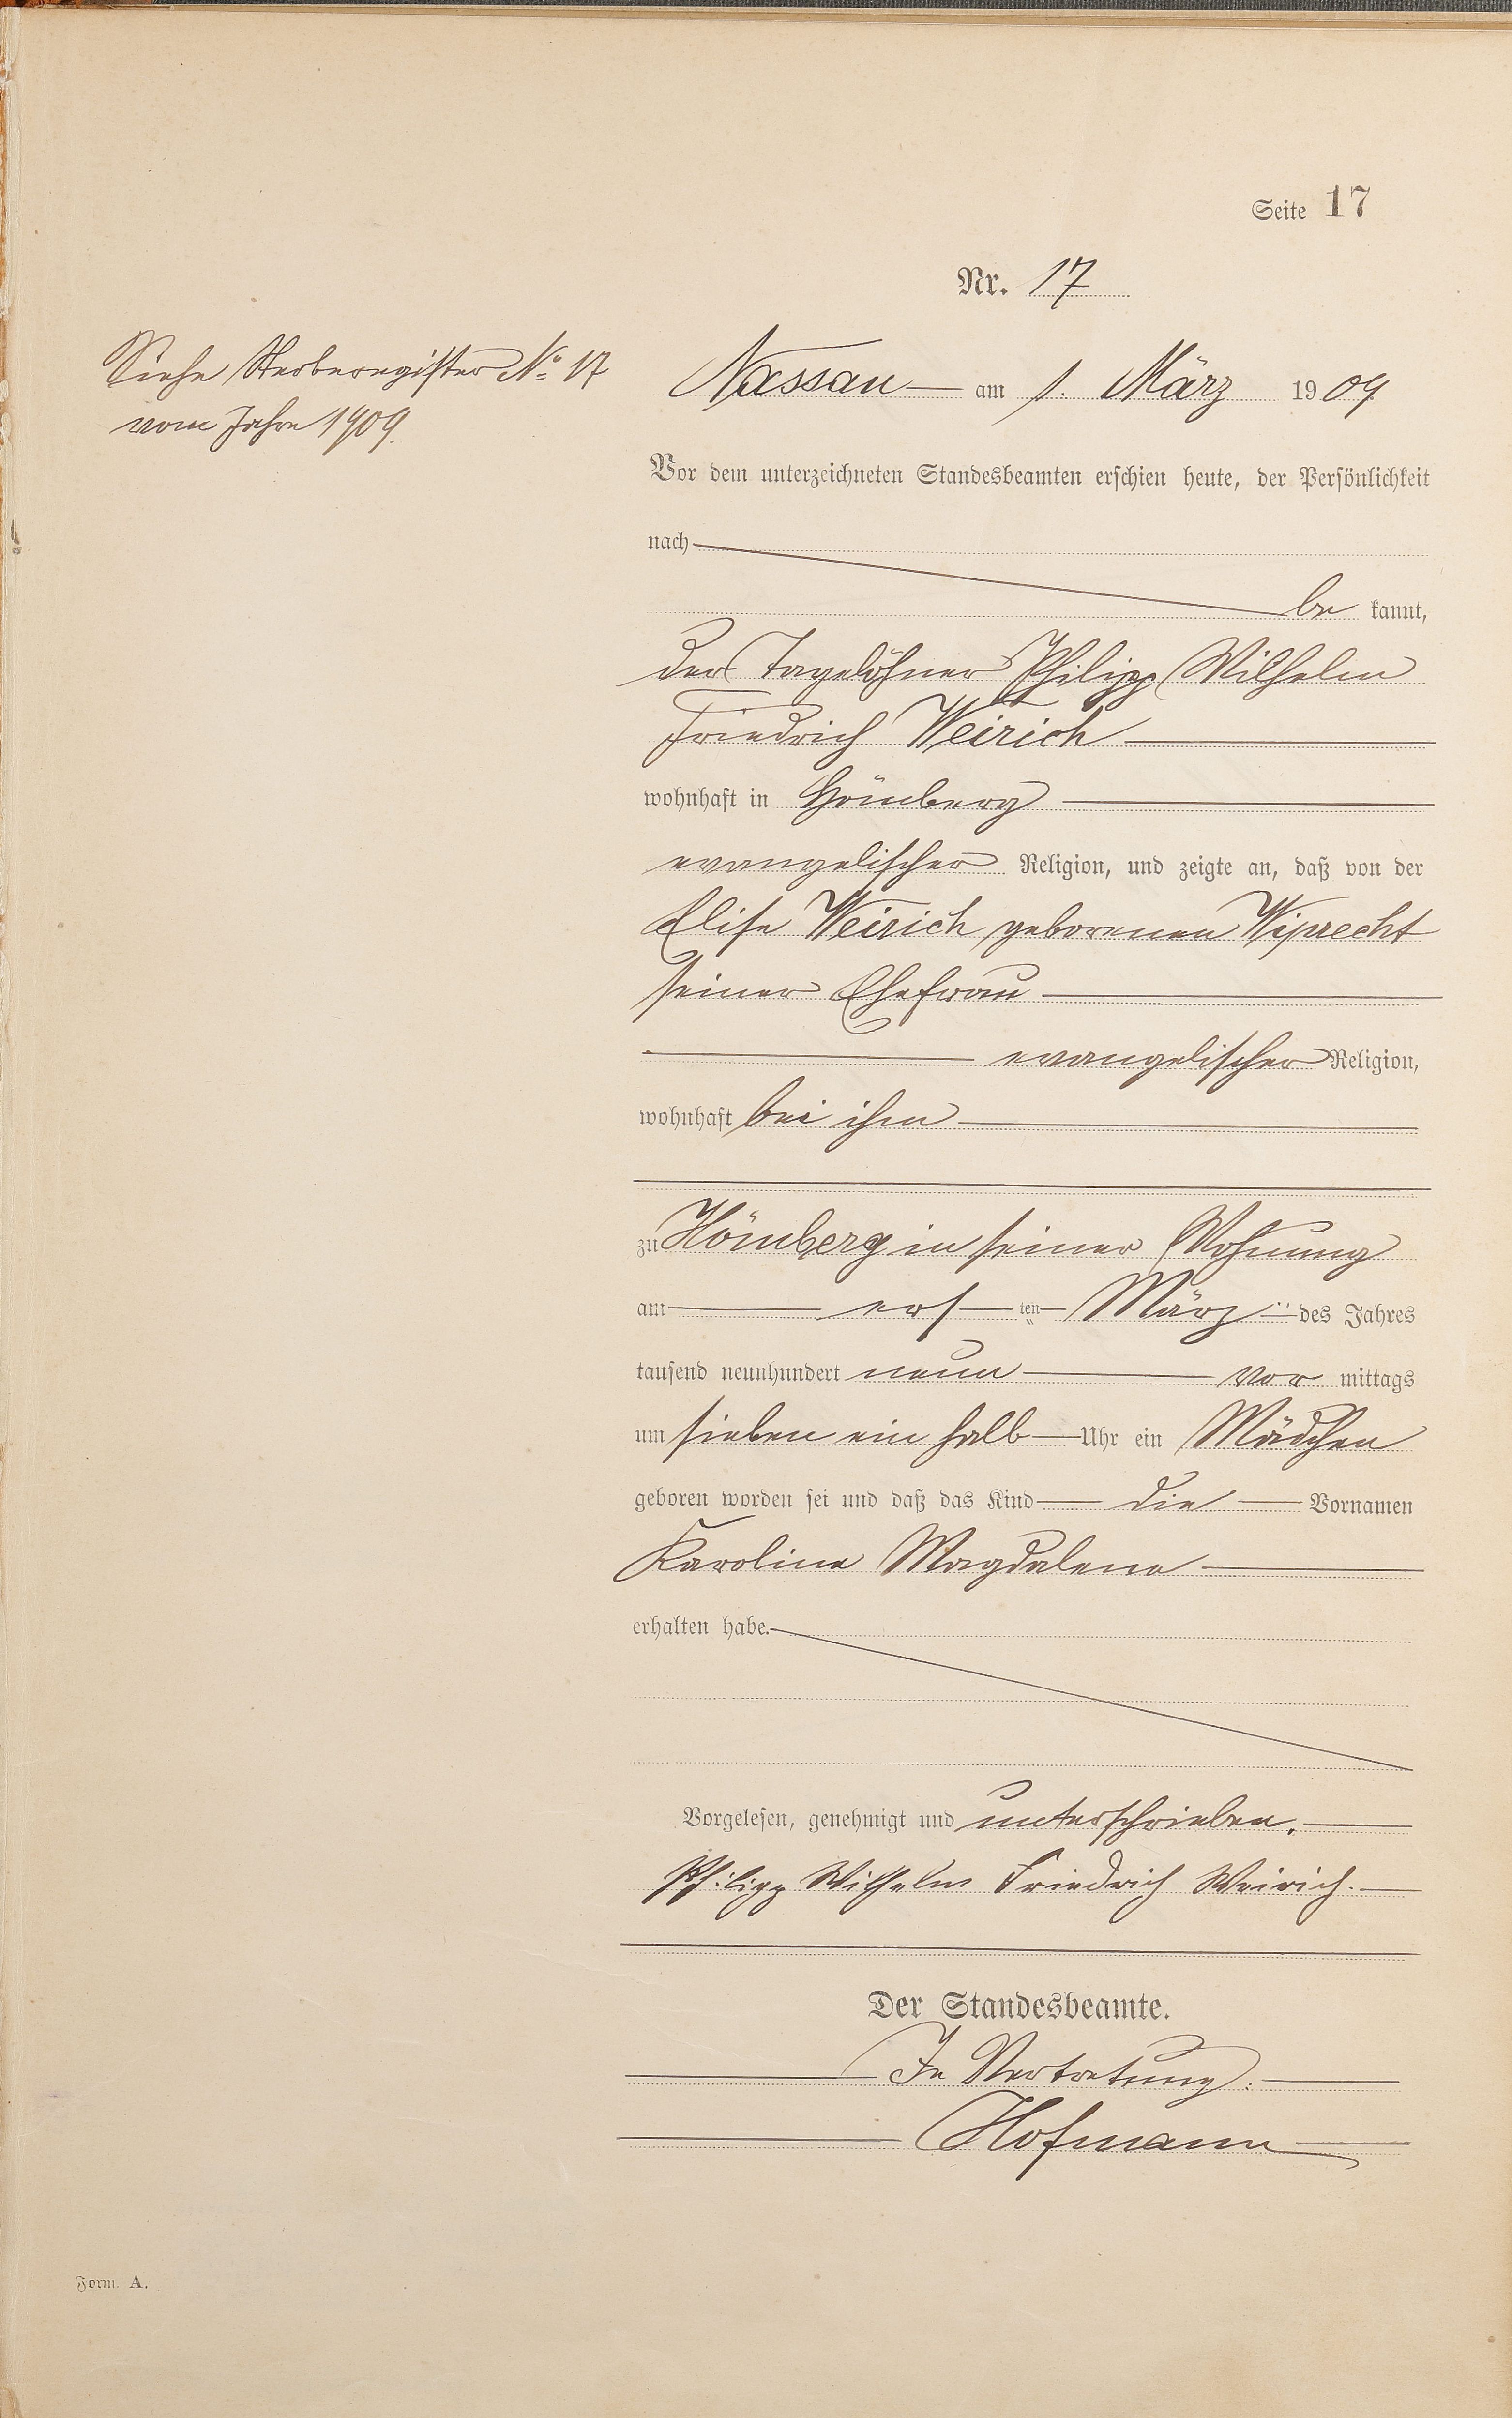 Seite 17
Nr. 17
Siehe Sterberegister No 17
vom Jahre 1909.
Nassau am 1. März 1909
Vor dem unterzeichneten Standesbeamten erschien heute, der Persönlichkeit
nach
be kannt,
der Tagelöhner Philipp Wilhelm
Friedrich Weirich
wohnhaft in Hömberg
evangelischer Religion, und zeigte an, daß von der
Elise Weirich geborenen Wiprecht
seiner Ehefrau
evangelischer Religion,
wohnhaft bei ihm
zu Hömberg in seiner Wohnung
am ers ten März des Jahres
tausend neunhundert neun vor mittags
um sieben ein halb Uhr ein Mädchen
geboren worden sei und daß das Kind die Vornamen
Karoline Magdalena
erhalten habe.
Vorgelesen, genehmigt und unterschrieben.
Philipp Wilhelm Friedrich Weirich.
Der Standesbeamte.
In Vertretung:
Hofmann
Form. A.